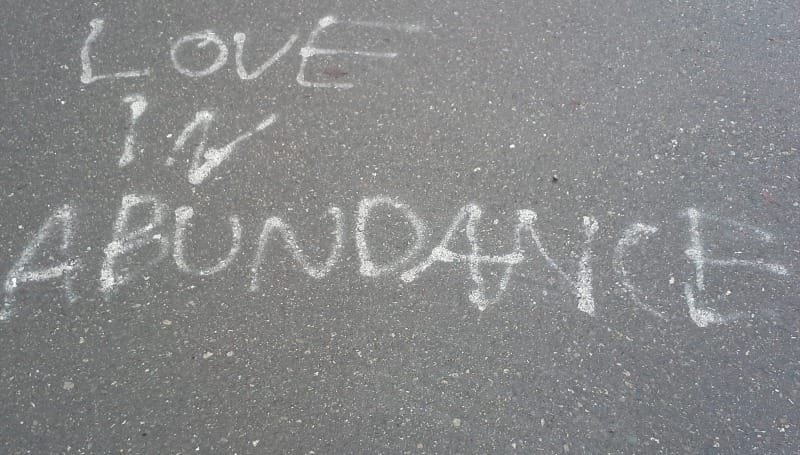 LOVE
IN
ABUNDANCE